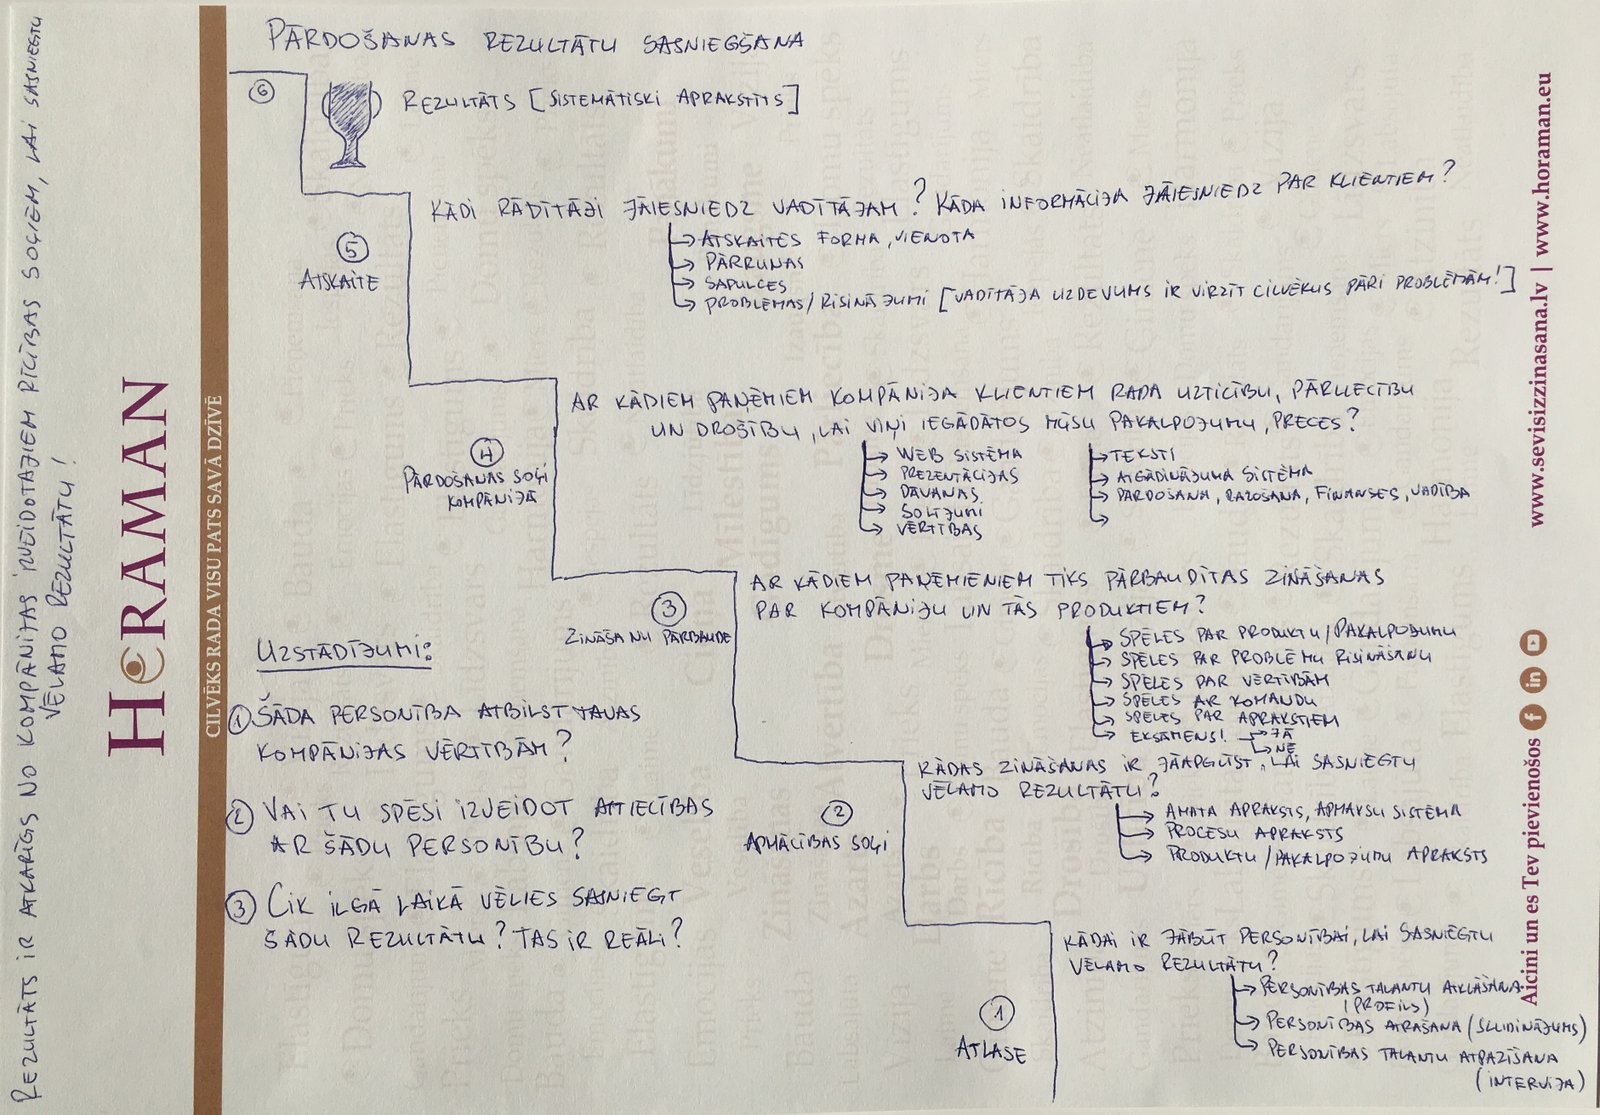 PĀRDOŠANAS REZULTĀTU SASNIEGŠANA
6
REZULTĀTS [SISTEMĀTISKI APRAKSTĪTS]
KĀDI RĀDĪTĀJI JĀIESNIEDZ VADĪTĀJAM? KĀDA INFORMĀCIJA JĀIESNIEDZ PAR KLIENTIEM?
ATSKAITES FORMA, VIENOTA
PĀRRUNAS
SAPULCES
PROBLĒMAS/RISINĀJUMI [VADĪTĀJA UZDEVUMS IR VIRZĪT CILVĒKUS PĀRI PROBLĒMĀM!]
5
ATSKAITE
AR KĀDIEM PAŅĒMIEM KOMPĀNIJA KLIENTIEM RADA UZTICĪBU, PĀRLIECĪBU
UN DROŠĪBU, LAI VIŅI IEGĀDĀTOS MŪSU PAKALPOJUMU, PRECES?
WEB SISTĒMA
PREZENTĀCIJAS
DĀVANAS
SOLĪJUMI
VĒRTĪBAS
TEKSTI
ATGĀDINĀJUMA SISTĒMA
PĀRDOŠANA, RAŽOŠANA, FINANSES, VADĪBA
4
PĀRDOŠANAS SOĻI
KOMPĀNIJĀ
AR KĀDIEM PAŅĒMIENIEM TIKS PĀRBAUDĪTAS ZINĀŠANAS
PAR KOMPĀNIJU UN TĀS PRODUKTIEM?
SPĒLES PAR PRODUKTU/PAKALPOJUMU
SPĒLES PAR PROBLĒMU RISINĀŠANU
SPĒLES PAR VĒRTĪBĀM
SPĒLES AR KOMANDU
SPĒLES PAR APRAKSTIEM
EKSĀMENS!
JĀ
NĒ
3
ZINĀŠANU PĀRBAUDE
KĀDAS ZINĀŠANAS IR JĀAPGŪST, LAI SASNIEGTU
VĒLAMO REZULTĀTU?
AMATA APRAKSTS, APMAKSU SISTĒMA
PROCESU APRAKSTS
PRODUKTU/PAKALPOJUMU APRAKSTS
2
APMĀCĪBAS SOĻI
KĀDAI IR JĀBŪT PERSONĪBAI, LAI SASNIEGTU
VĒLAMO REZULTĀTU?
PERSONĪBAS TALANTU ATKLĀŠANA
(PROFILS)
PERSONĪBAS ATRAŠANA (SLUDINĀJUMS)
PERSONĪBAS TALANTU ATPAZĪŠANA
(INTERVIJA)
1
ATLASE
UZSTĀDĪJUMI:
1 ŠĀDA PERSONĪBA ATBILST TAVAS
KOMPĀNIJAS VĒRTĪBĀM?
2 VAI TU SPĒSI IZVEIDOT ATTIECĪBAS
AR ŠĀDU PERSONĪBU?
3 CIK ILGĀ LAIKĀ VĒLIES SASNIEGT
ŠĀDU REZULTĀTU? TAS IR REĀLI?
REZULTĀTS IR ATKARĪGS NO KOMPĀNIJAS IZVEIDOTAJIEM RĪCĪBAS SOĻIEM, LAI SASNIEGTU
VĒLAMO REZULTĀTU!
HORAMAN
CILVĒKS RADA VISU PATS SAVĀ DZĪVĒ
Aicini un es Tev pievienošos
www.sevisizzinasana.lv | www.horaman.eu